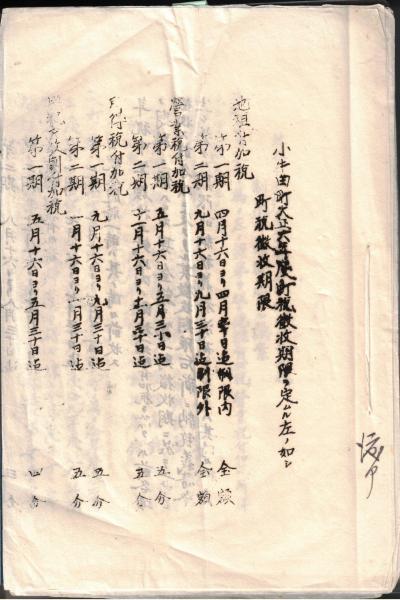 小牛田町大正六年度町税徴収期限ヲ定ムル左ノ如シ
町税徴收期限
地租付加税
第一期 四月十六日ヨリ四月三十日迄制限内 全額
第二期 九月十六日ヨリ九月三十日迄制限外 全額
營業税付加税
第一期 五月十六日ヨリ五月三十日迄 五分
第二期 十一月十六日ヨリ十一月三十日迄 五分
付加税
第一期 九月十六日ヨリ九月三十日迄 五分
第二期 一月十六日ヨリ一月三十日迄 五分
税戸数割付加税
第一期 五月十六日ヨリ五月三十日迄 四分